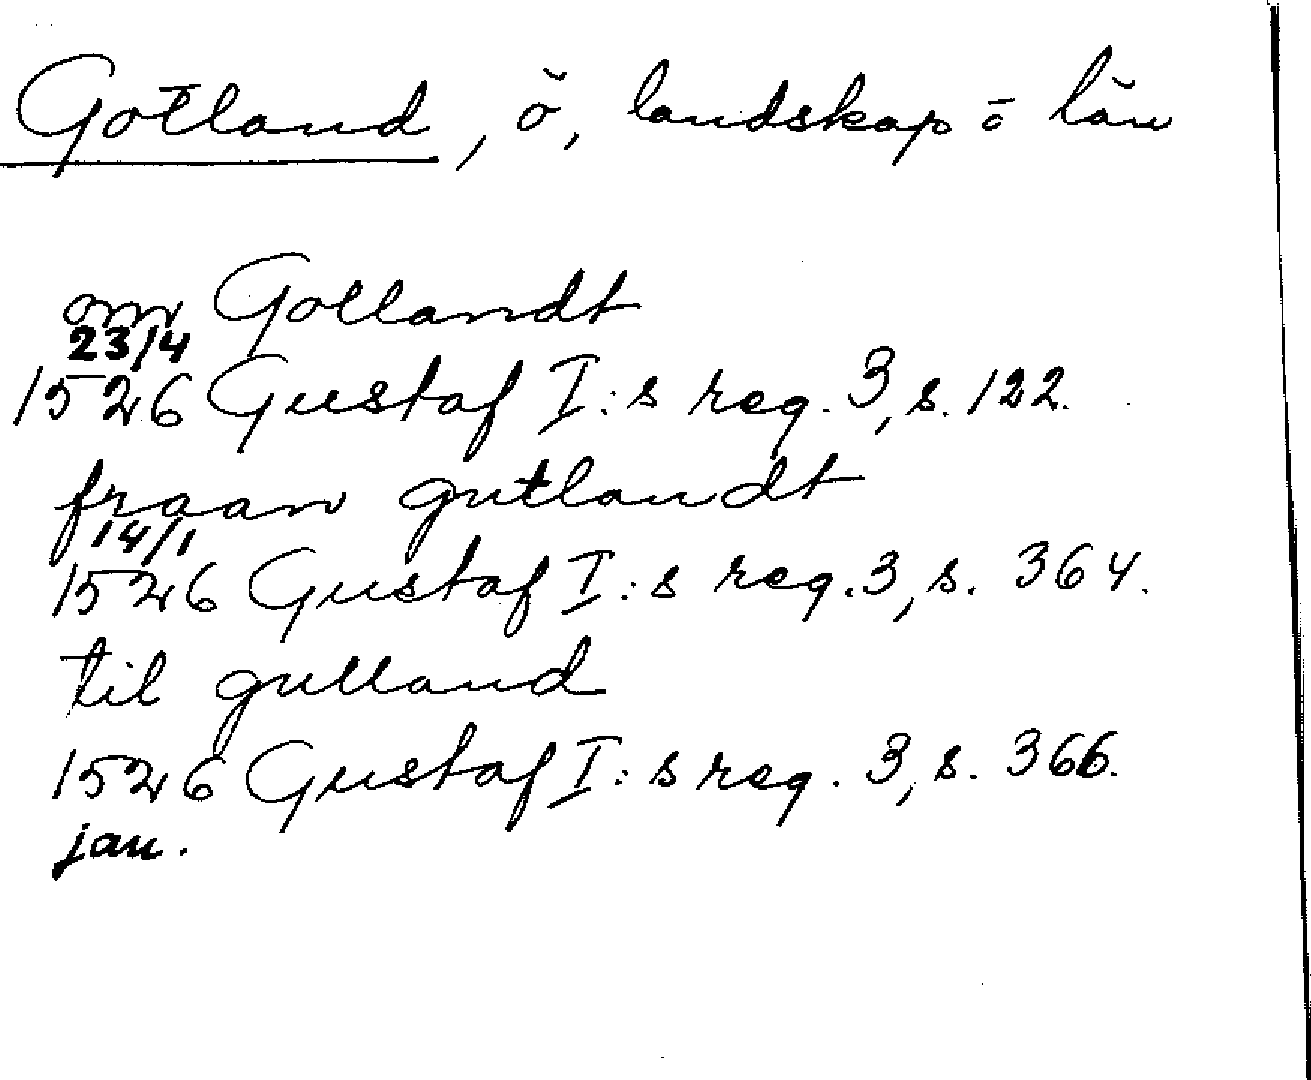 Gotland, ö, landskap o län
om Gollandt
23/4
1526 Gustaf I:s reg. 3, s. 122.
fraan gutlandt
14/1
1526 Gustaf I:s reg. 3, s. 364.
til gulland
1526 Gustaf I:s reg. 3, s. 366.
jan.